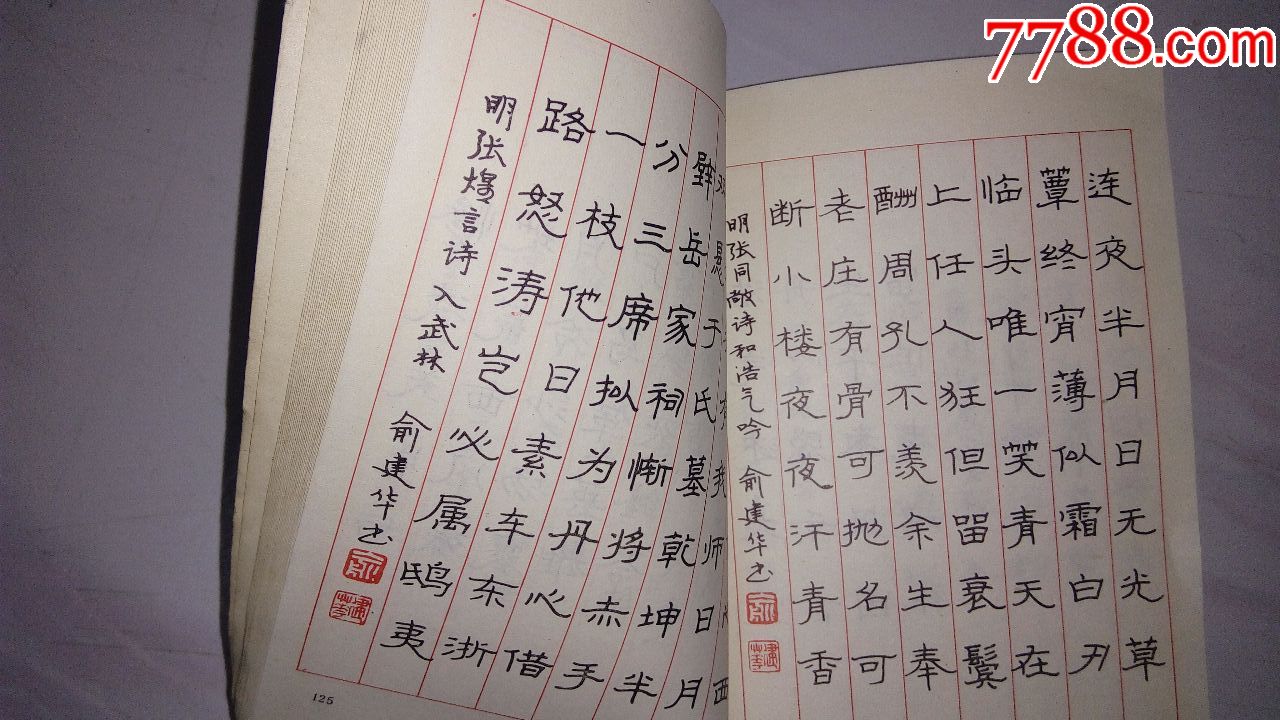 连夜半月日无光草
蕈终宵薄似霜白刃
临头唯一笑青天在
上任人狂但留衰鬓
酬周孔不羡余生奉
老庄有骨可抛名可
断小楼夜夜汗青香
明张同敞诗和浩气吟 俞建华书
师日月
悬于氏墓乾坤半
壁岳家祠惭将赤手
分三席拟为丹心借
一枝他日素车东浙
路怒涛岂必属鸱夷
明张煌言诗入武林 俞建华书
125
7788.com